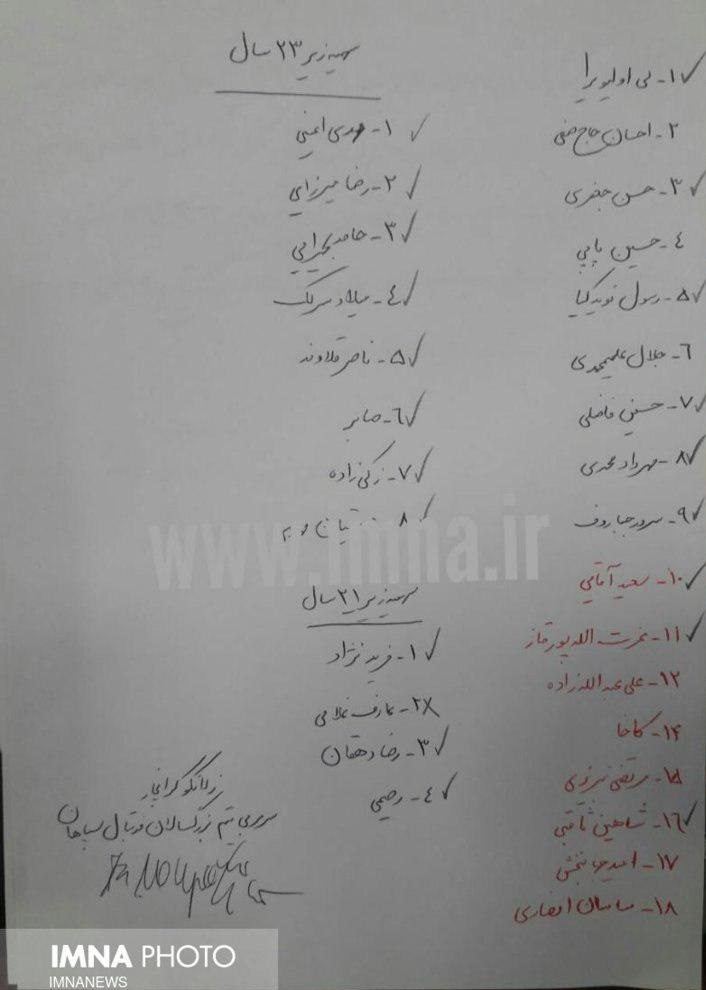 ۱- لی اولیویرا
۲- احسان حاج صفی
۳- حسن جعفری
٤- حسین پاپی
۵- رسول نویدکیا
٦- جلال علیمحمدی
۷- حسین فاضلی
۸- مهرداد محمدی
۹- سرور جباروف
۱۰- سعید آقایی
۱۱- عزت الله پورقاز
۱۲- علی عبدالله زاده
۱۴- کاخا
۱۵- مرتضی تبریزی
۱٦- شاهین ثاقبی
۱۷- امید جانبخش
۱۸- ساسان انصاری
سهمیه زیر ۲۳ سال
۱- مهدی امینی
۲- رضا میرزایی
۳- حامد بحیرایی
٤- میلاد سرلک
۵- ناصر قلاوند
٦- صابر
۷- زکی زاده
۸-
سهمیه زیر ۲۱ سال
۱- فرید نژاد
۲- عارف غلامی
۳- رضا دهقان
٤- رحیمی
زلاتکو کرانچار
سرمربی تیم بزرگسالان فوتبال سپاهان
www.imna.ir
IMNA PHOTO
IMNANEWS